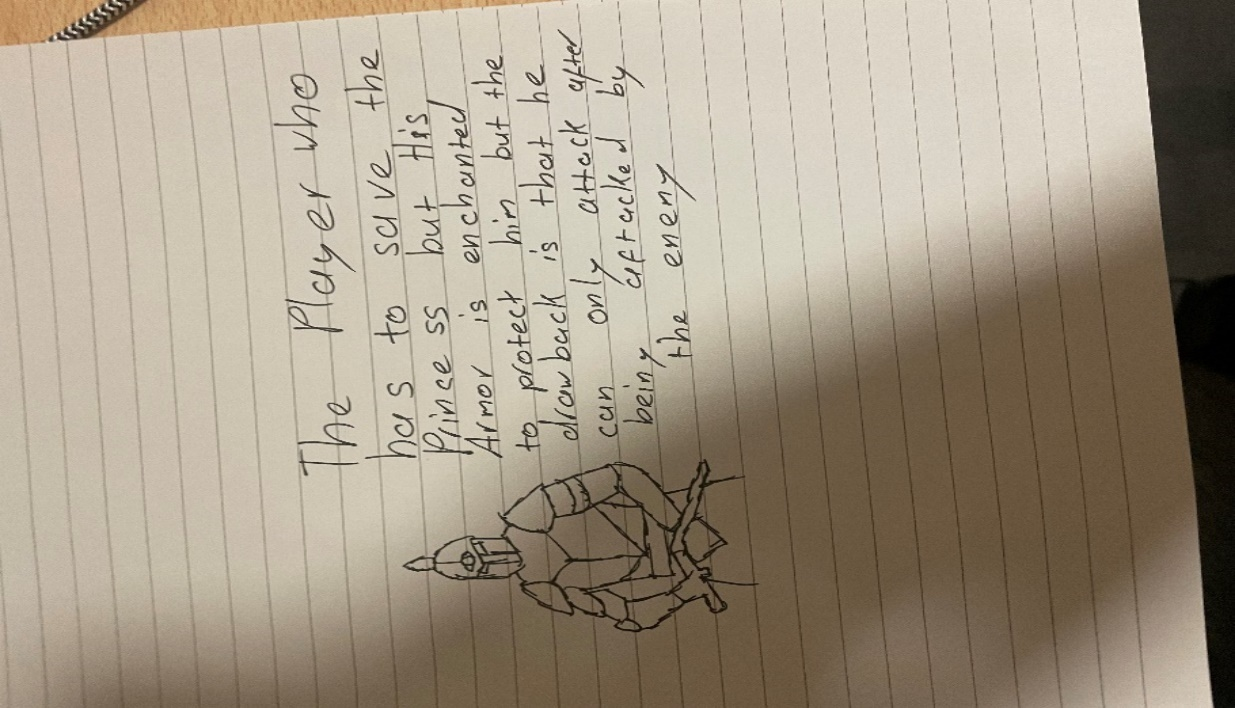 The Player who
has to save the
Prince ss but His
Armor is enchanted
to protect him but the
drawback is that he
can only attack after
being attacked by
the enemy